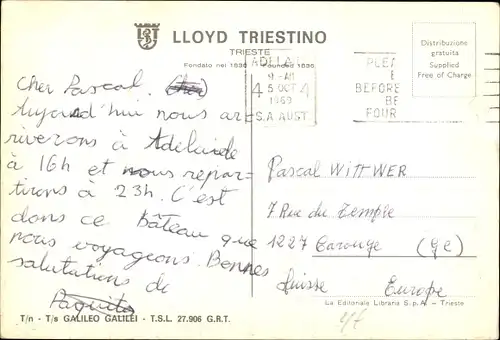 LLOYD TRIESTINO
TRIESTE
Fondato nel 1836 Founded 1836
Distribuzione
gratuita
Supplied
Free of Charge
9-AM
5 OCT
4 4
1969
S.A AUST
PLEA
BEFORE
BE
FOUR
Cher Pascal. (cher)
Aujourd'hui nous ar-
riverons à Adelaide
à 16h et nous repar-
tirons à 23h. C'est
dans ce bâteau que
nous voyageons. Bonnes
salutations de
Paquito
Pascal WITTWER
7 Rue du Temple
1227 Carouge (Ge)
Suisse Europe
La Editoriale Libraria S.p.A. - Trieste
T/n - T/s GALILEO GALILEI - T.S.L. 27.906 G.R.T.